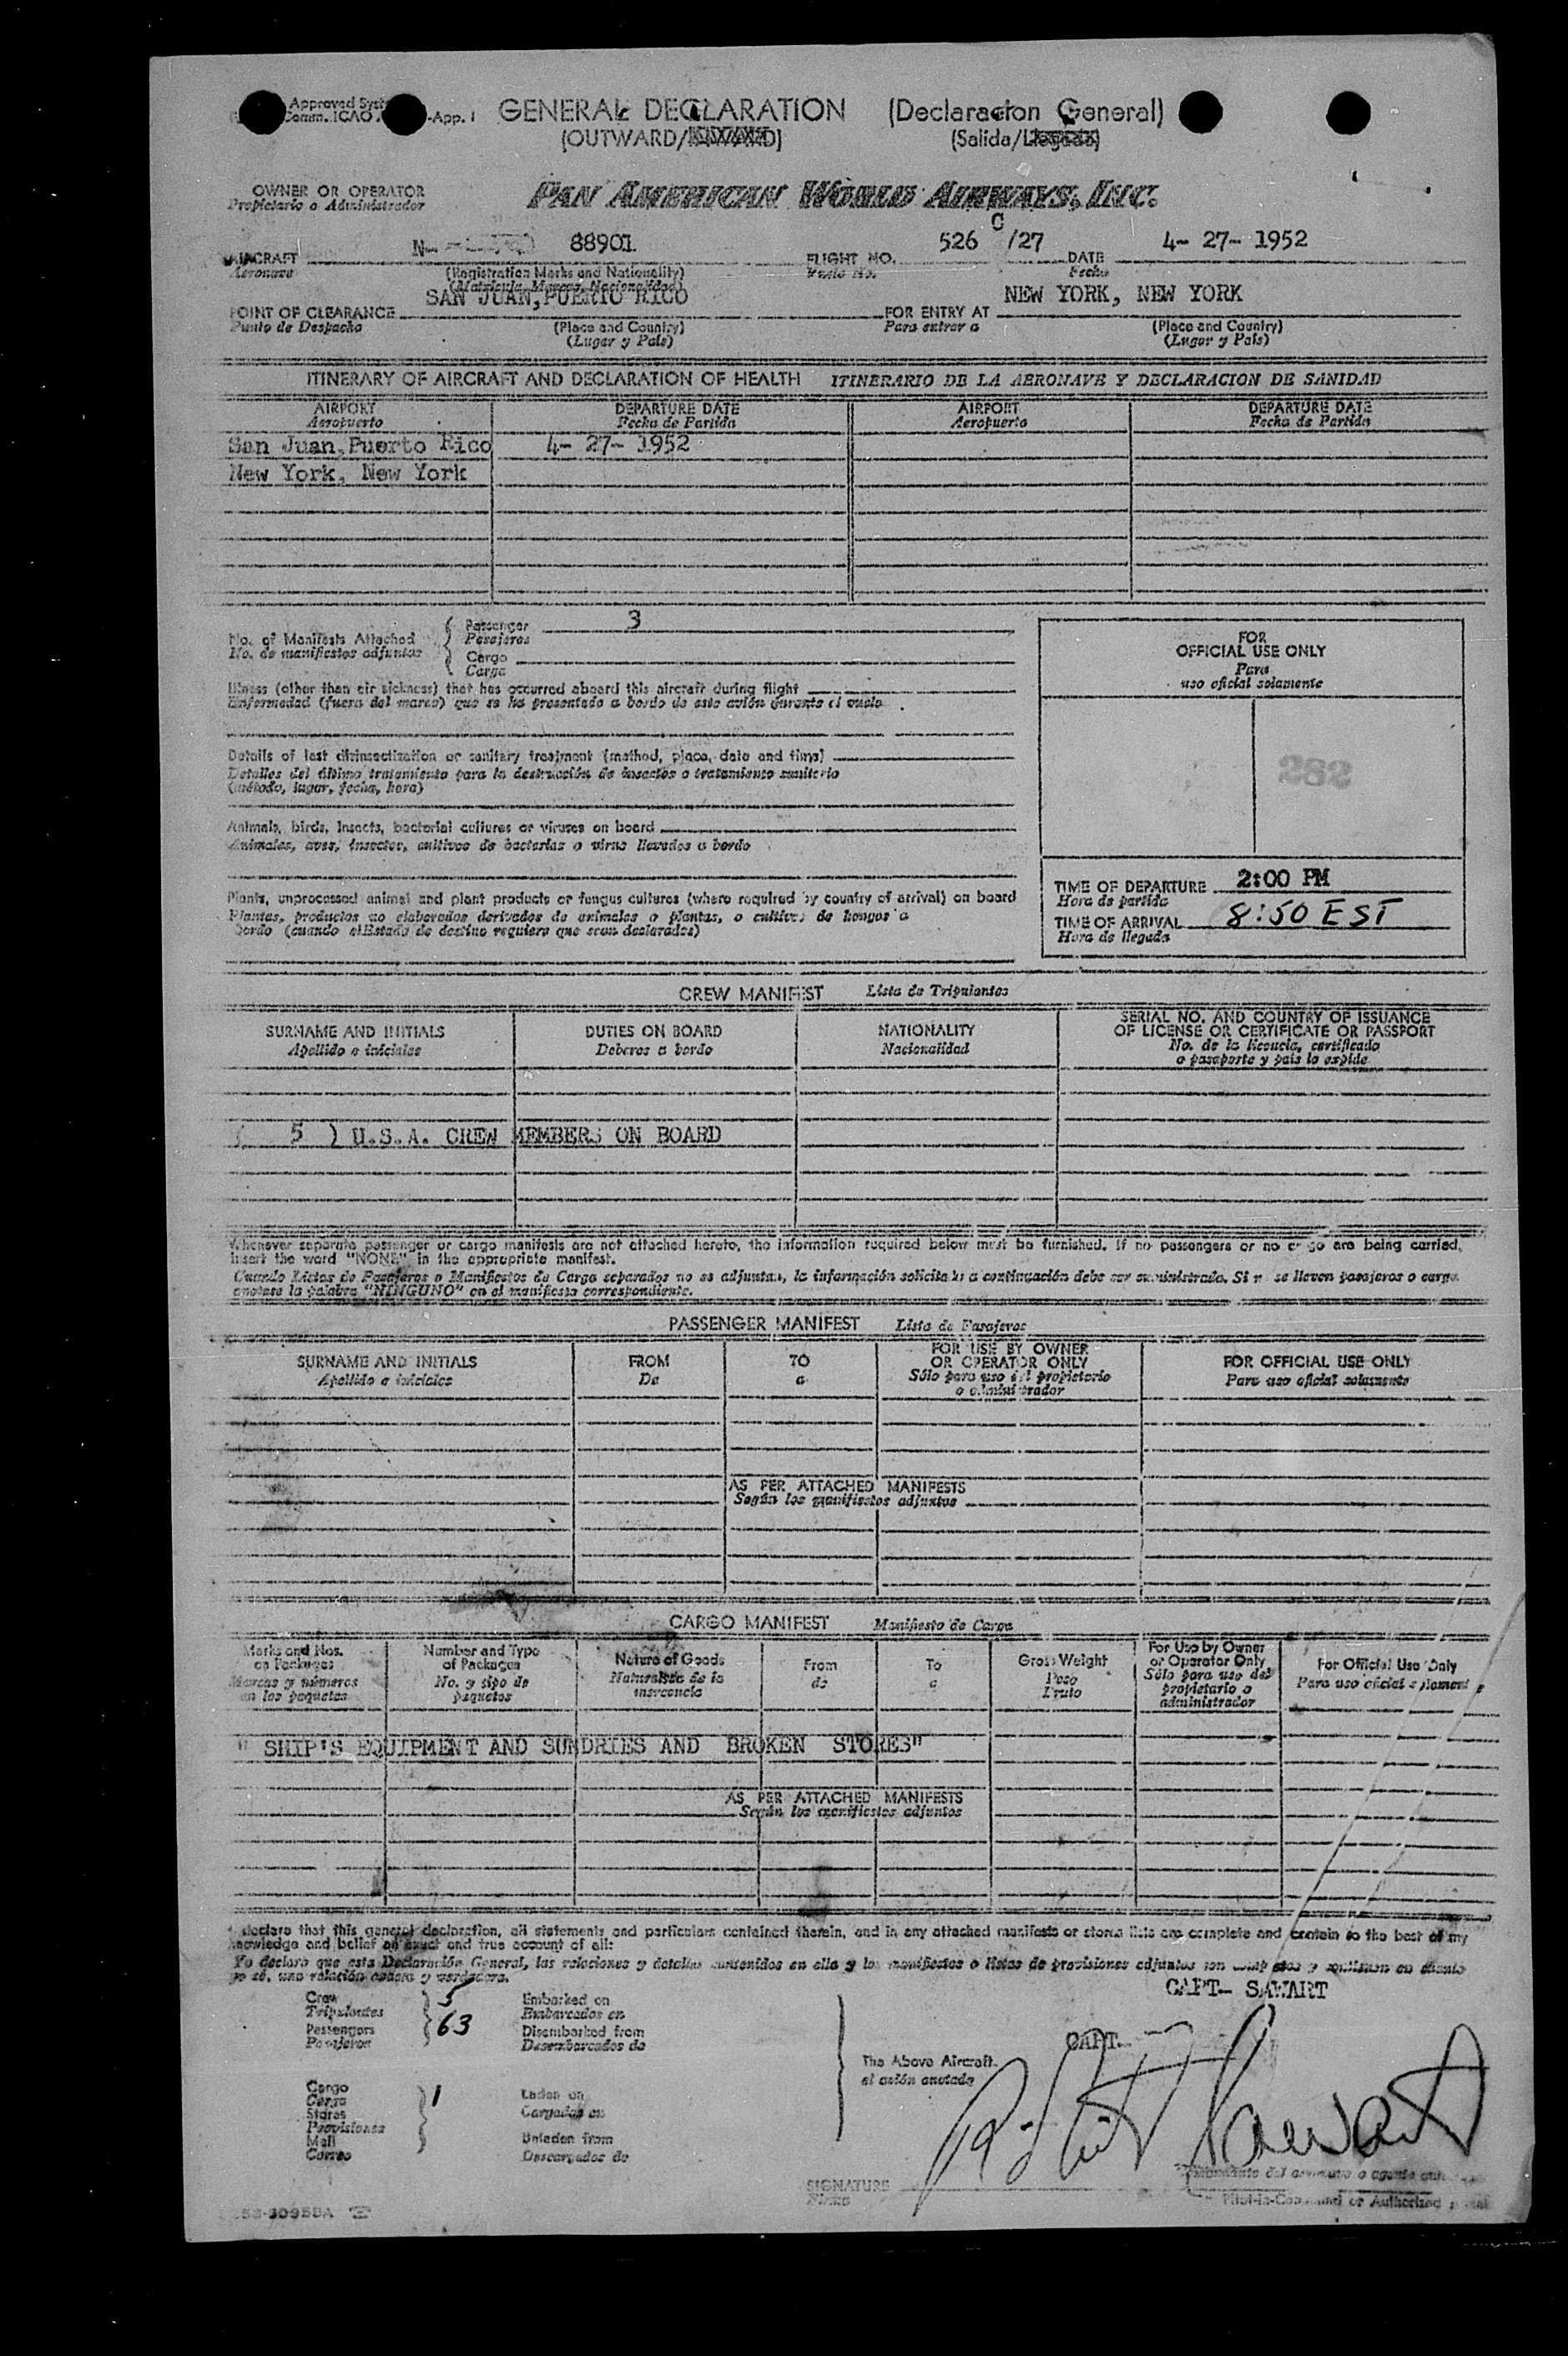 Approved
Comm. ICAO -App. 1
GENERAL DECLARATION (Declaracion General)
(OUTWARD/INWARD) (Salida/Llegada)
OWNER OR OPERATOR
Propietario o Administrador
PAN AMERICAN WORLD AIRWAYS, INC.
AIRCRAFT N- 88901 FLIGHT NO. 526 C /27 DATE 4- 27- 1952
Aeronave (Registration Marks and Nationality) Vuelo No. Fecha
(Matricula, Marcas, Nacionalidad)
POINT OF CLEARANCE SAN JUAN, PUERTO RICO FOR ENTRY AT NEW YORK, NEW YORK
Punto de Despacho (Place and Country) Para entrar a (Place and Country)
(Lugar y País) (Lugar y País)
ITINERARY OF AIRCRAFT AND DECLARATION OF HEALTH ITINERARIO DE LA AERONAVE Y DECLARACION DE SANIDAD
AIRPORT DEPARTURE DATE AIRPORT DEPARTURE DATE
Aeropuerto Fecha de Partida Aeropuerto Fecha de Partida
San Juan, Puerto Rico 4- 27- 1952
New York, New York
No. of Manifests Attached
No. de manifiestos adjuntos
Passenger 3
Pasajeros
Cargo
Carga
Illness (other than air sickness) that has occurred aboard this aircraft during flight
Enfermedad (fuera del mareo) que se ha presentado a bordo de este avión durante el vuelo
Details of last disinsectization or sanitary treatment (method, place, date and time)
Detalles del último tratamiento para la destrucción de insectos o tratamiento sanitario
(método, lugar, fecha, hora)
Animals, birds, insects, bacterial cultures or viruses on board
Animales, aves, insectos, cultivos de bacterias o virus llevados a bordo
Plants, unprocessed animal and plant products or fungus cultures (where required by country of arrival) on board
Plantas, productos no elaborados derivados de animales o plantas, o cultivos de hongos a
bordo (cuando el Estado de destino requiera que sean declarados)
FOR
OFFICIAL USE ONLY
Para
uso oficial solamente
282
TIME OF DEPARTURE 2:00 PM
Hora de partida
TIME OF ARRIVAL 8:50 EST
Hora de llegada
CREW MANIFEST Lista de Tripulantes
SURNAME AND INITIALS DUTIES ON BOARD NATIONALITY SERIAL NO. AND COUNTRY OF ISSUANCE
OF LICENSE OR CERTIFICATE OR PASSPORT
Apellido e iniciales Deberes a bordo Nacionalidad No. de la licencia, certificado
o pasaporte y país lo expide
( 5 ) U.S.A. CREW MEMBERS ON BOARD
Whenever separate passenger or cargo manifests are not attached hereto, the information required below must be furnished. If no passengers or no cargo are being carried,
insert the word "NONE" in the appropriate manifest.
Cuando Listas de Pasajeros o Manifiestos de Carga separados no se adjuntan, la información solicitada a continuación debe ser suministrada. Si no se lleven pasajeros o carga
anotese la palabra "NINGUNO" en el manifiesto correspondiente.
PASSENGER MANIFEST Lista de Pasajeros
SURNAME AND INITIALS FROM TO FOR USE BY OWNER
OR OPERATOR ONLY FOR OFFICIAL USE ONLY
Apellido e iniciales De a Sólo para uso del propietario
o administrador Para uso oficial solamente
AS PER ATTACHED MANIFESTS
Según los manifiestos adjuntos
CARGO MANIFEST Manifiesto de Carga
Marks and Nos.
on Packages
Marcas y números
en los paquetes
Number and Type
of Packages
No. y tipo de
paquetes
Nature of Goods
Naturaleza de la
mercancia
From
de
To
a
Gross Weight
Peso
Bruto
For Use by Owner
or Operator Only
Sólo para uso del
propietario o
administrador
For Official Use Only
Para uso oficial solamente
" SHIP'S EQUIPMENT AND SUNDRIES AND BROKEN STORES"
AS PER ATTACHED MANIFESTS
Según los manifiestos adjuntos
I declare that this general declaration, all statements and particulars contained therein, and in any attached manifests or stores lists are complete and contain to the best of my
knowledge and belief an exact and true account of all:
Yo declaro que esta Declaración General, las relaciones y detalles contenidos en ella y los manifiestos o listas de provisiones adjuntos son completos y
yo sé, una relación exacta y verdadera.
CAPT- SAWART
Crew 5 Embarked on
Tripulantes Embarcados en
Passengers 63 Disembarked from
Pasajeros Desembarcados de
The Above Aircraft.
el avión anotado
CAPT.
Cargo 1 Laden on
Carga
Stores Cargados en
Provisiones
Mail Unladen from
Correo Descargados de
SIGNATURE
Firma
Pilot-in-Command or Authorized